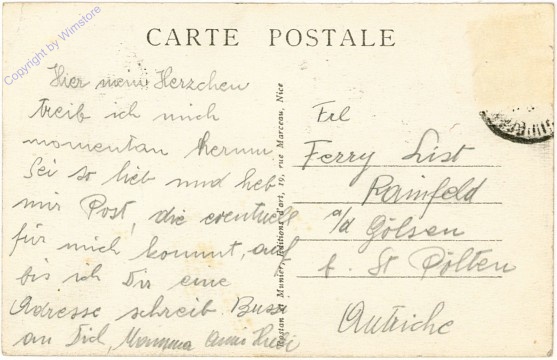 CARTE POSTALE
Copyright by Wimstore
Hier mein Herzchen
treib ich mich
momentan herum.
Sei so lieb und heb
mir Post, die eventuell
für mich kommt, auf
bis ich Dir eine
Adresse schreib. Bussi
an Dich, Mamma
Munier, Éditions d'art, 19, rue Marceau, Nice
Frl
Ferry List
Rainfeld
a/d Gölsen
b. St Pölten
Autriche